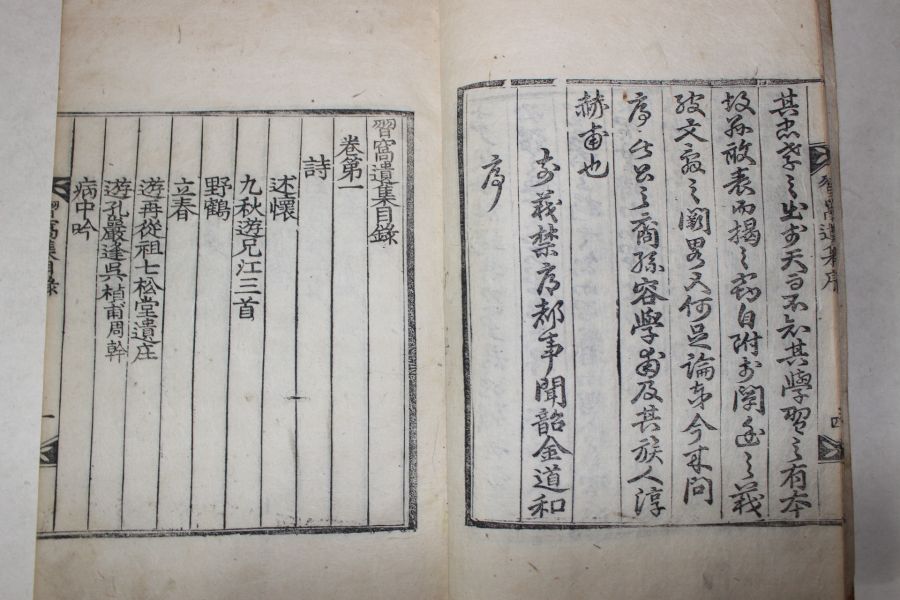 習窩遺集序
四
其忠孝之出於天而不知其學習之有本
故敢表而揭之竊自附於闡幽之義
彼文之闕畧又何足論今來問
序者公之裔孫容學甫及其族人淳
赫甫也
前義禁府都事聞韶金道和
序
習窩遺集目錄
卷第一
詩
述懷
九秋遊兄江三首
野鶴
立春
遊再從祖七松堂遺庄
遊孔巖逢吳楨甫周幹
病中吟
習窩集目錄
一